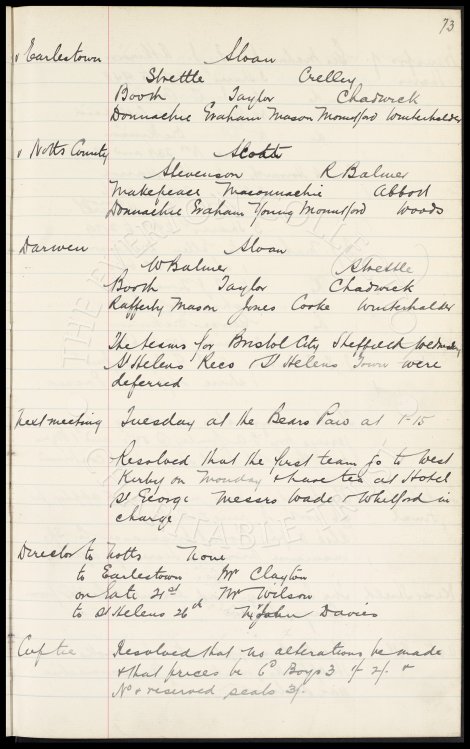 73
v Earlestown Sloan
Strettle Crelley
Booth Taylor Chadwick
Donnachie Graham Mason Mountford Winterhalder
v Notts County Scott
Stevenson R Balmer
Makepeace Maconnachie Abbott
Donnachie Graham Young Mountford Woods
Darwen Sloan
W Balmer Strettle
Booth Taylor Chadwick
Rafferty Mason Jones Cooke Winterhalder
The teams for Bristol City Sheffield Wednesday
St Helens Recs & St Helens Town were
deferred
Next meeting Tuesday at the Bears Paw at 1-15
Resolved that the first team go to West
Kirby on Monday & have tea at Hotel
St George Messrs Wade & Whitford in
charge
Director to Notts None
to Earlestown Mr Clayton
on Gate 21st Mr Wilson
to St Helens 26th Mr John Davies
Cup tie Resolved that no alterations be made
& that prices be 6d Boys 3 1/- 2/- &
No & reserved seats 3/-